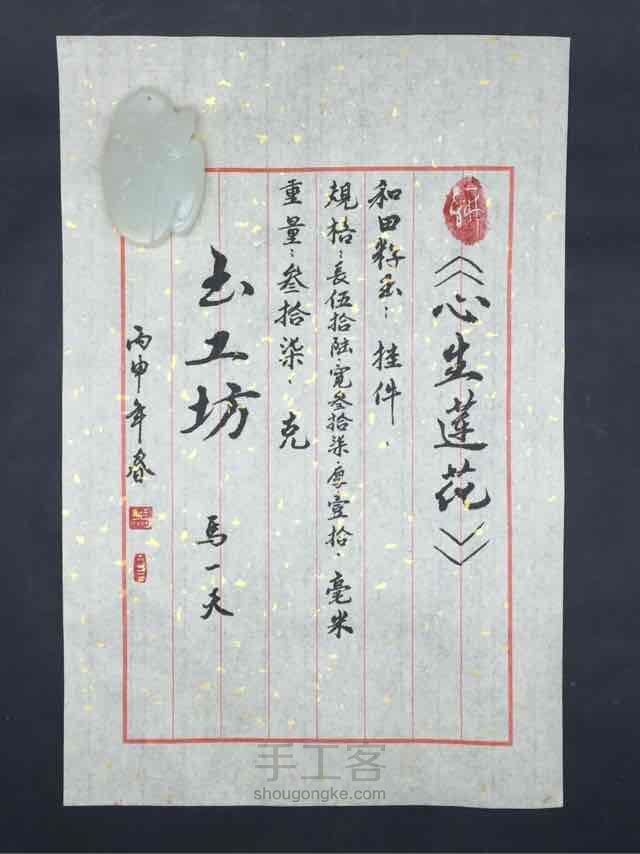 《心生莲花》
和田籽玉：挂件．
规格：長伍拾陆．宽叁拾柒．厚壹拾．毫米
重量：叁拾柒．克
玉工坊 馬一天
丙申年春
手工客
shougongke.com